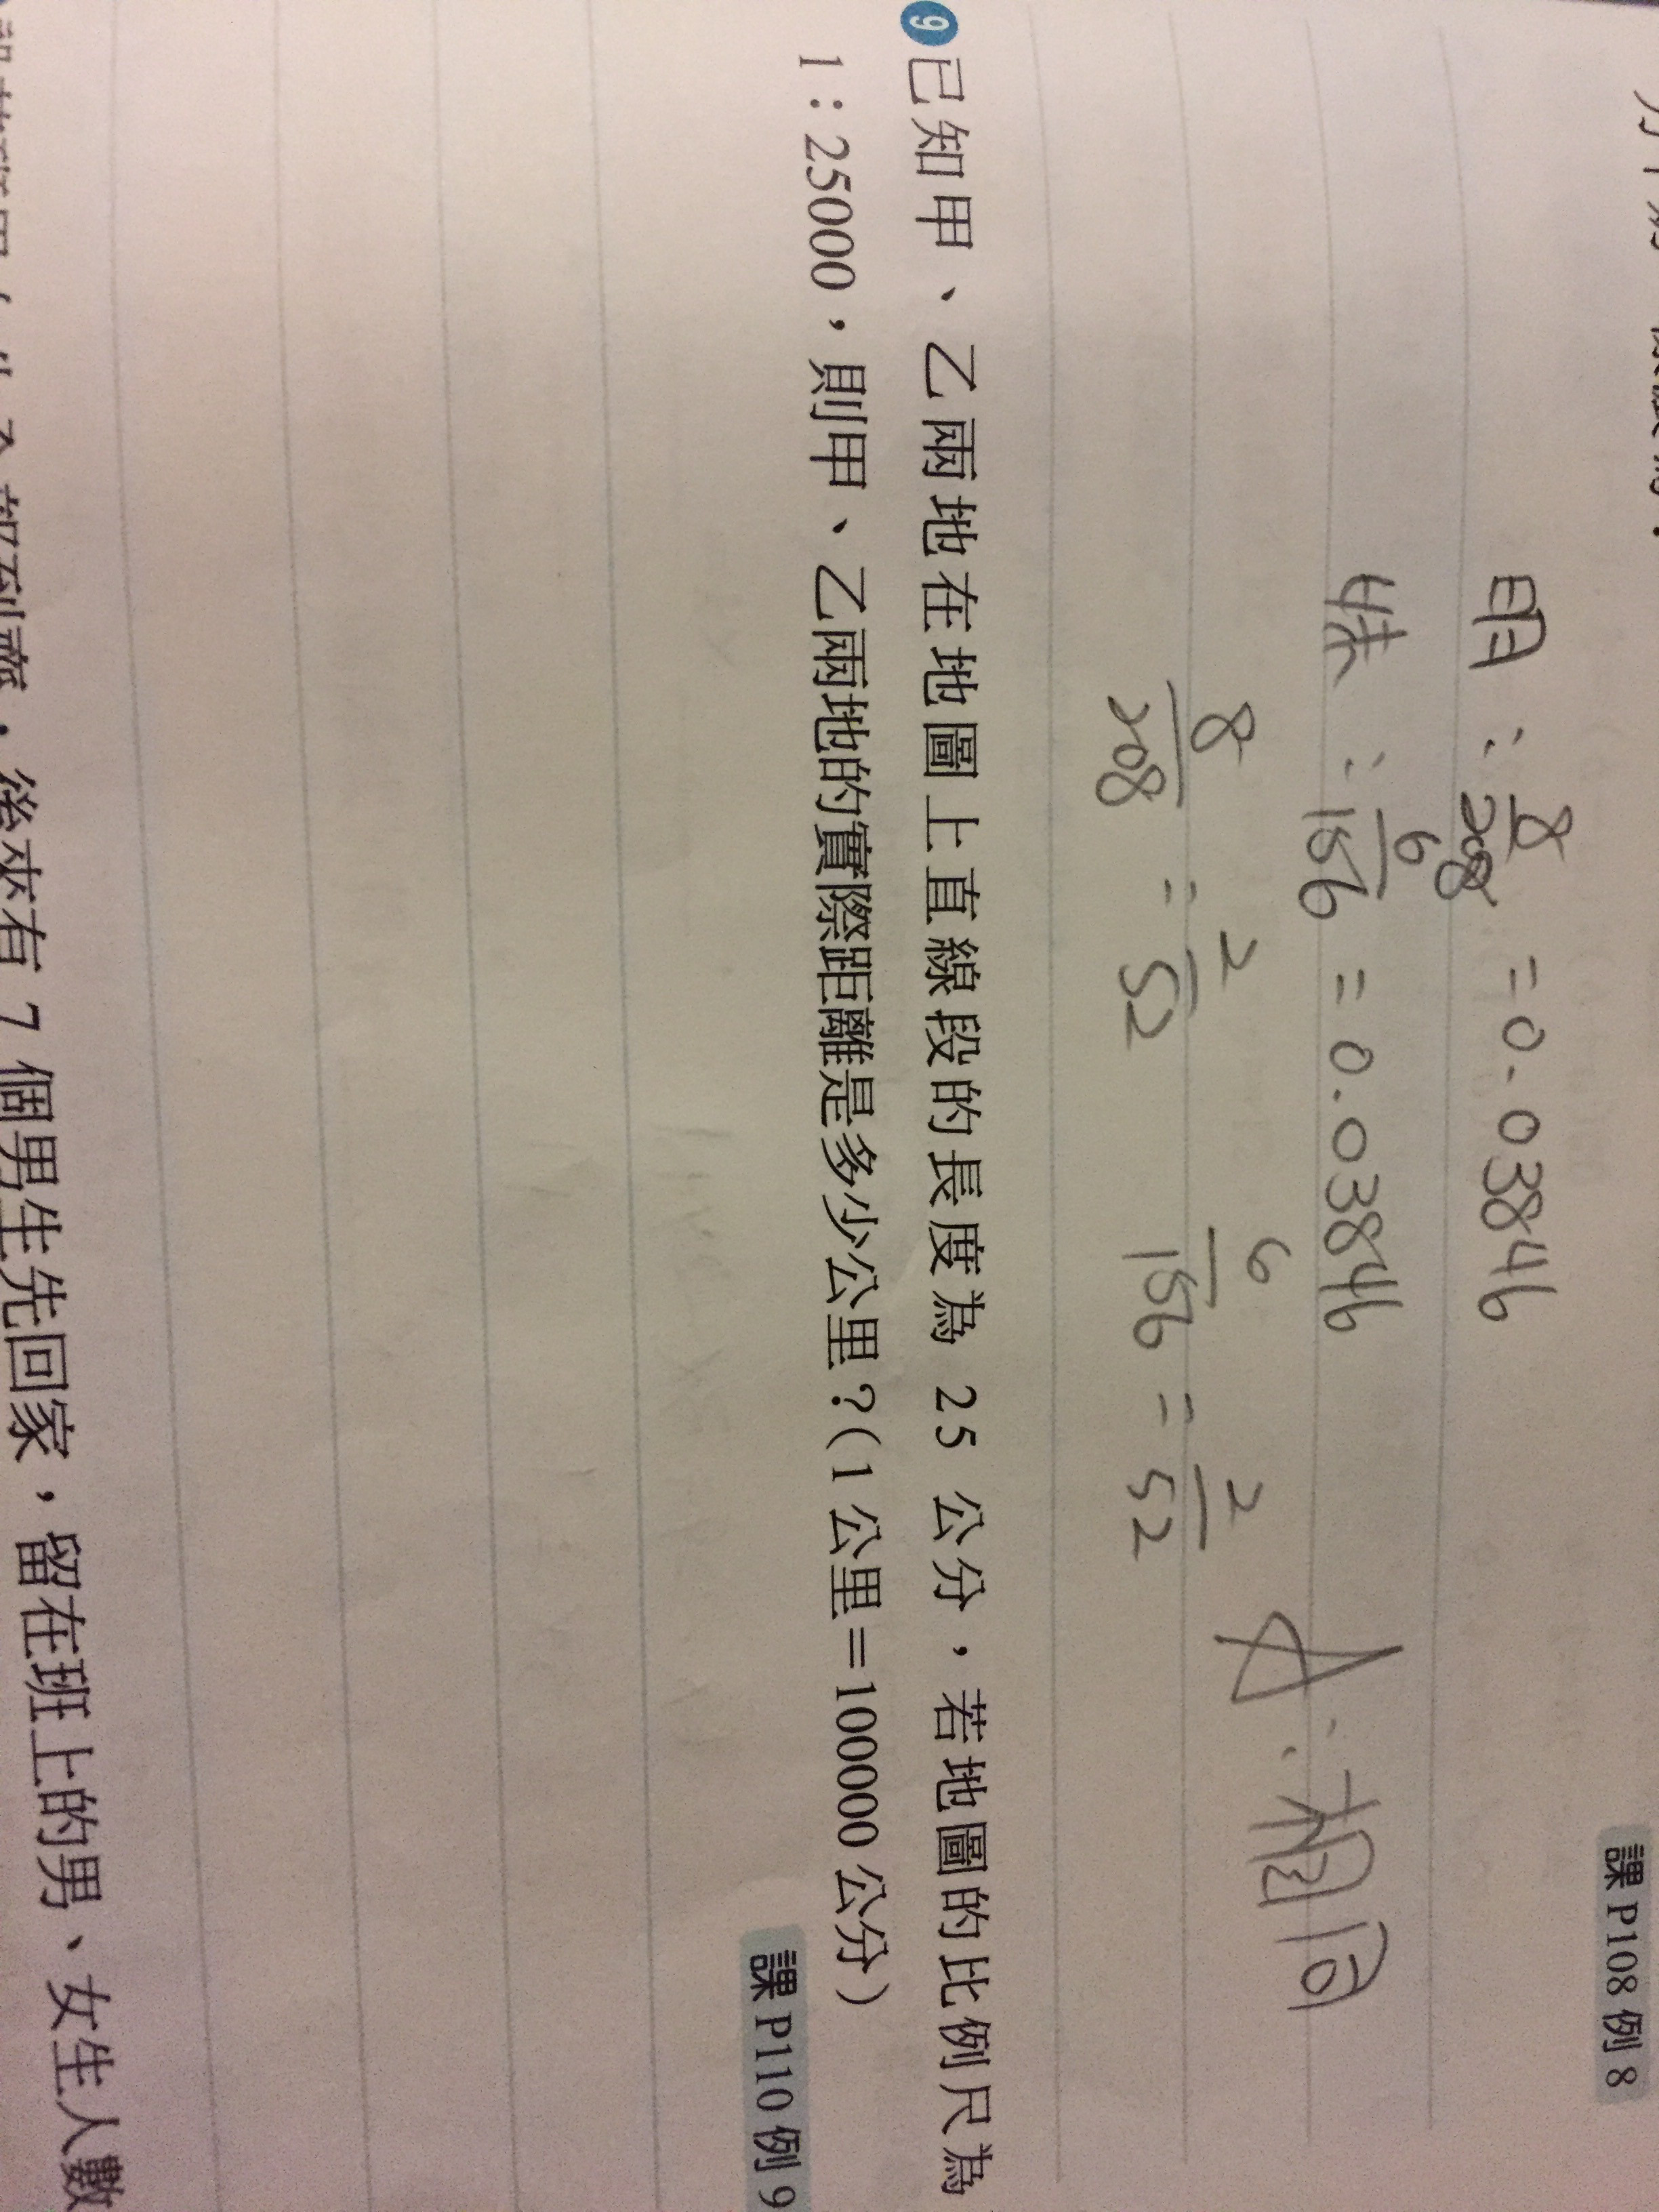 課P108例8
明：8/208 = 0.03846
妹：6/156 = 0.03846
8/208 = 2/52  6/156 = 2/52
A：相同
9 已知甲、乙兩地在地圖上直線段的長度為 25 公分，若地圖的比例尺為
1：25000，則甲、乙兩地的實際距離是多少公里？(1公里=100000公分)
課P110例9
後來有 7 個男生先回家，留在班上的男、女生人數